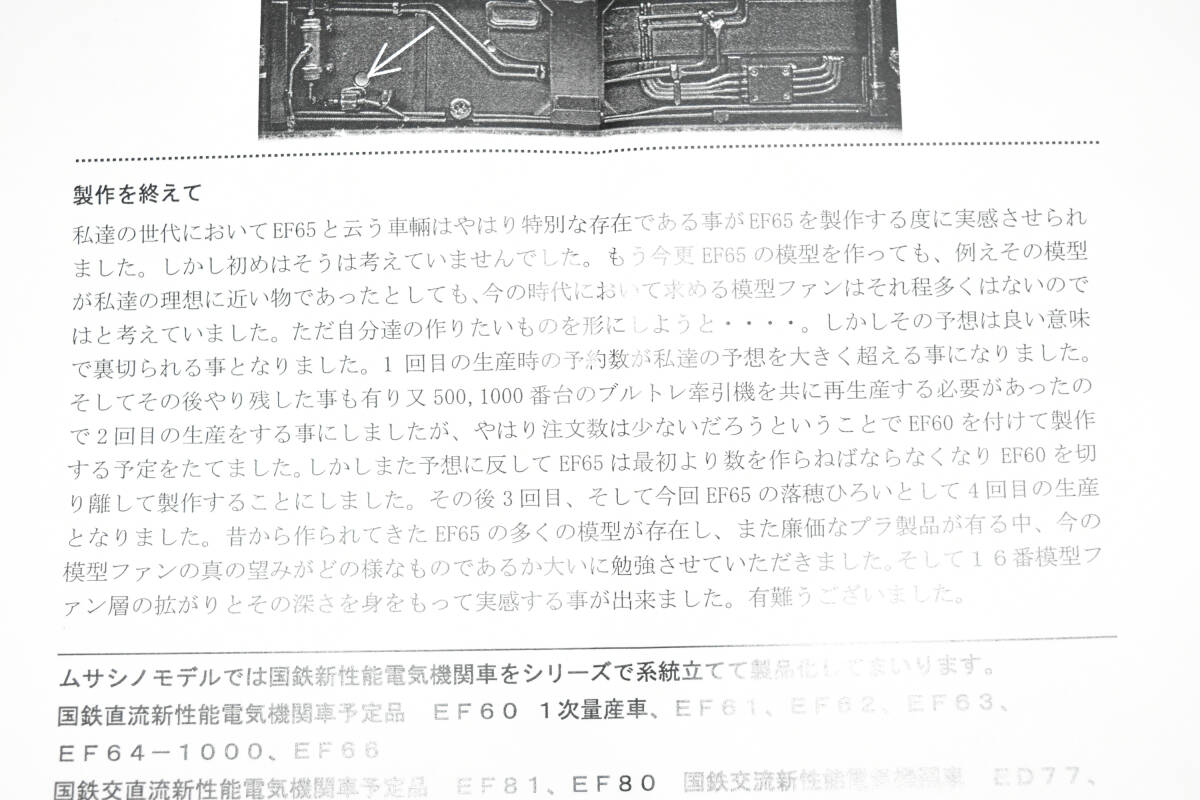 製作を終えて
私達の世代においてEF65と云う車輛はやはり特別な存在である事がEF65を製作する度に実感させられ
ました。しかし初めはそうは考えていませんでした。もう今更EF65の模型を作っても、例えその模型
が私達の理想に近い物であったとしても、今の時代において求める模型ファンはそれ程多くはないので
はと考えていました。ただ自分達の作りたいものを形にしようと・・・・。しかしその予想は良い意味
で裏切られる事となりました。1回目の生産時の予約数が私達の予想を大きく超える事になりました。
そしてその後やり残した事も有り又500,1000番台のブルトレ牽引機を共に再生産する必要があったの
で2回目の生産をする事にしましたが、やはり注文数は少ないだろうということでEF60を付けて製作
する予定をたてました。しかしまた予想に反してEF65は最初より数を作らねばならなくなりEF60を切
り離して製作することにしました。その後3回目、そして今回EF65の落穂ひろいとして4回目の生産
となりました。昔から作られてきたEF65の多くの模型が存在し、また廉価なプラ製品が有る中、今の
模型ファンの真の望みがどの様なものであるか大いに勉強させていただきました。そして１６番模型フ
ァン層の拡がりとその深さを身をもって実感する事が出来ました。有難うございました。
ムサシノモデルでは国鉄新性能電気機関車をシリーズで系統立てて製品化してまいります。
国鉄直流新性能電気機関車予定品　ＥＦ６０ １次量産車、ＥＦ６１、ＥＦ６２、ＥＦ６３、
ＥＦ６４－１０００、ＥＦ６６
国鉄交直流新性能電気機関車予定品　ＥＦ８１、ＥＦ８０　国鉄交流新性能電気機関車　ＥＤ７７、